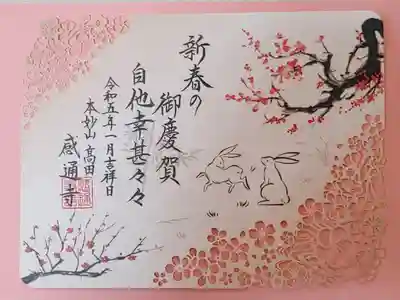 新春の
御慶賀
自他幸甚々々
令和五年一月吉祥日
本妙山 高田
感通寺